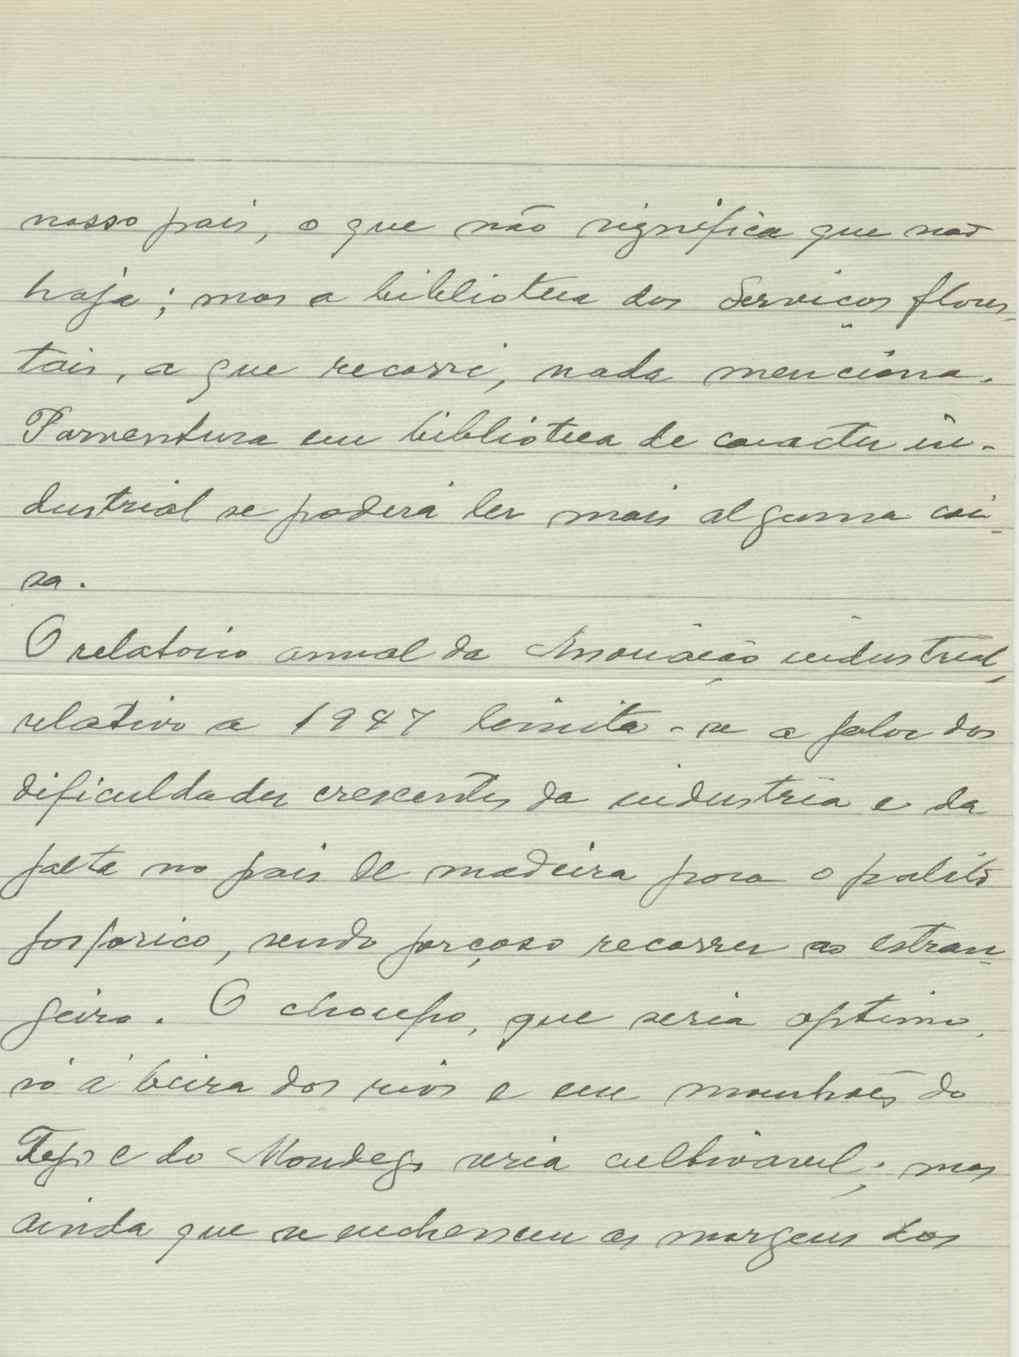 nosso pais, o que não significa que não
haja; mas a biblioteca dos Serviços flores-
tais, a que recorri, nada menciona.
Porventura em biblioteca de caracter in-
dustrial se poderá ler mais alguma coi-
sa.
O relatorio annual da Associação industrial,
relativo a 1947 limita-se a falar das
dificuldades crescentes da industria e da
falta no pais de madeira para o palito
fosforico, sendo forçoso recorrer ao estran-
geiro. O choupo, que seria optimo,
só á beira dos rios e em mouchões do
Tejo e do Mondego seria cultivavel; mas
ainda que se enchessem as margens dos